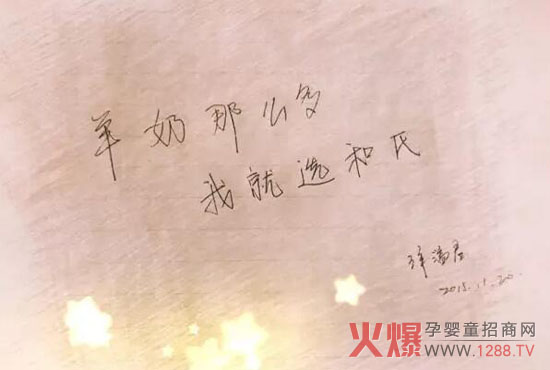 羊奶那么多
我就选和氏
2015.11.20.
火爆孕婴童招商网
www.1288.TV